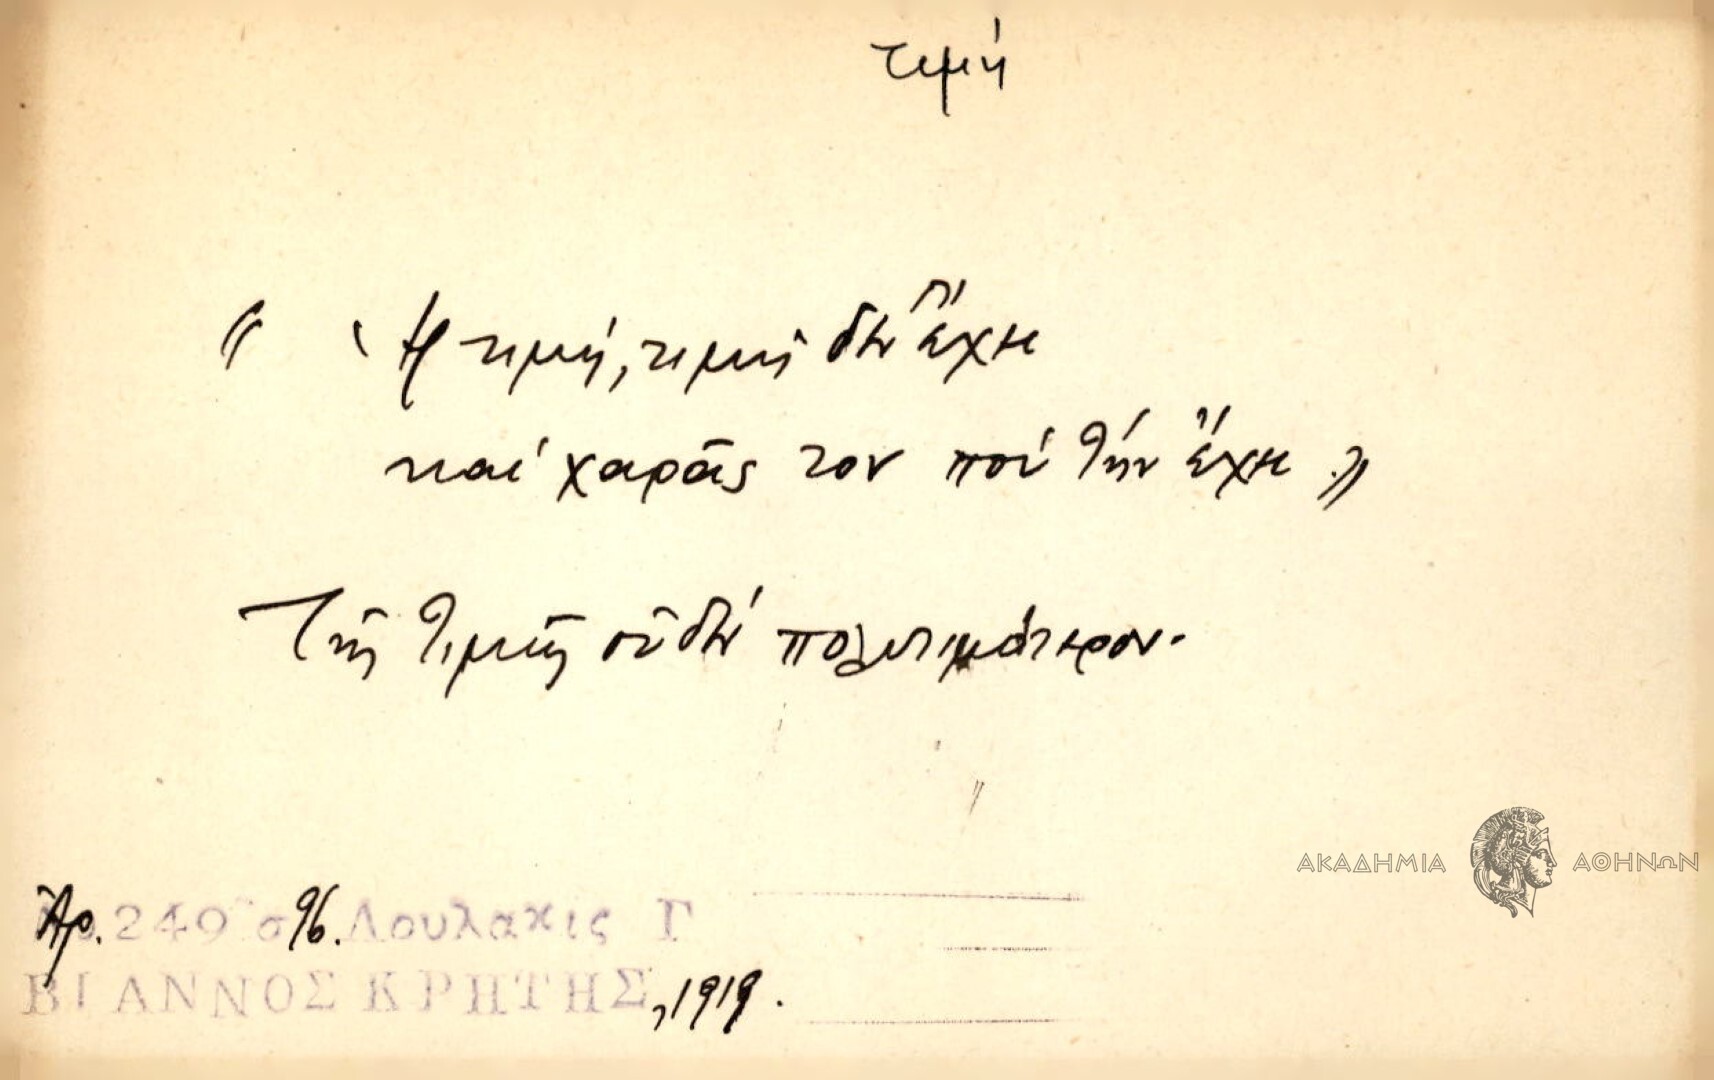 τιμή
« Ἡ τιμή, τιμὴ δὲν ἔχει
καί χαρᾶς τον πού τήν ἔχει.»
Τῆς τιμῆς οὐδέν πολυτιμότερον.
Ἀρ. 249 σ. 96. Λουλακις Γ
ΒΙΑΝΝΟΣ ΚΡΗΤΗΣ, 1919.
ΑΚΑΔΗΜΙΑ ΑΘΗΝΩΝ